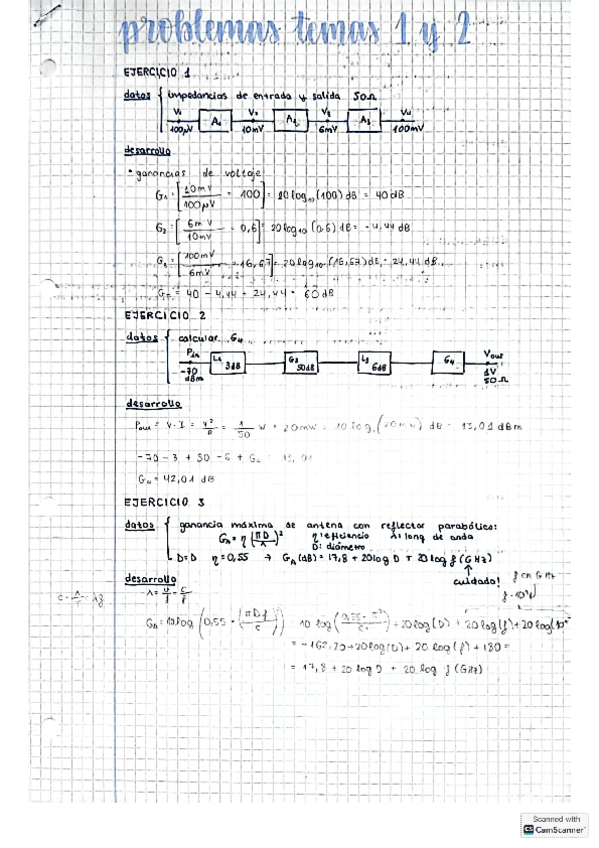 problemas temas 1 y 2
EJERCICIO 1
datos { impedancias de entrada y salida 50Ω
V1 A1 V2 A2 V3 A3 V4
100μV 10mV 6mV 100mV
desarrollo
• ganancias de voltaje
G1 = [10mV / 100μV = 100] = 20 log10 (100) dB = 40 dB
G2 = [6mV / 10mV = 0,6] = 20 log10 (0,6) dB = -4,44 dB
G3 = [100mV / 6mV = 16,67] = 20 log10 (16,67) dB = 24,44 dB
GT = 40 - 4,44 + 24,44 = 60 dB
EJERCICIO 2
datos { calcular G4
Pin L1 3dB G2 50dB L3 6dB G4 Vout
-70 dBm 1V 50Ω
desarrollo
Pout = V · I = V² / R = 1 / 50 W = 20mW = 10 log (20mW) dB = 13,01 dBm
-70 - 3 + 50 - 6 + G4 = 13,01
G4 = 42,01 dB
EJERCICIO 3
datos { ganancia máxima de antena con reflector parabólico:
GA = η (πD / λ)² η: eficiencia λ = long de onda
D: diámetro
D=D η = 0,55 → GA (dB) = 17,8 + 20 log D + 20 log f (GHz)
cuidado!
f en GHz
desarrollo
GA = 10 log (0,55 · (πDf / c)
= -162,20 + 20 log (D) + 20 log (f) + 180 =
= 17,8 + 20 log D + 20 log f (GHz)
Scanned with
CS CamScanner